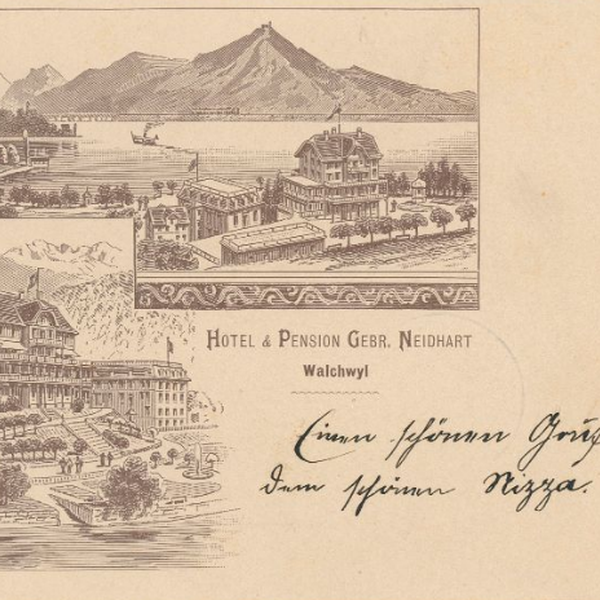 HOTEL & PENSION GEBR. NEIDHART
Walchwyl
Einen schönen Gruß
dem schönen Nizza.